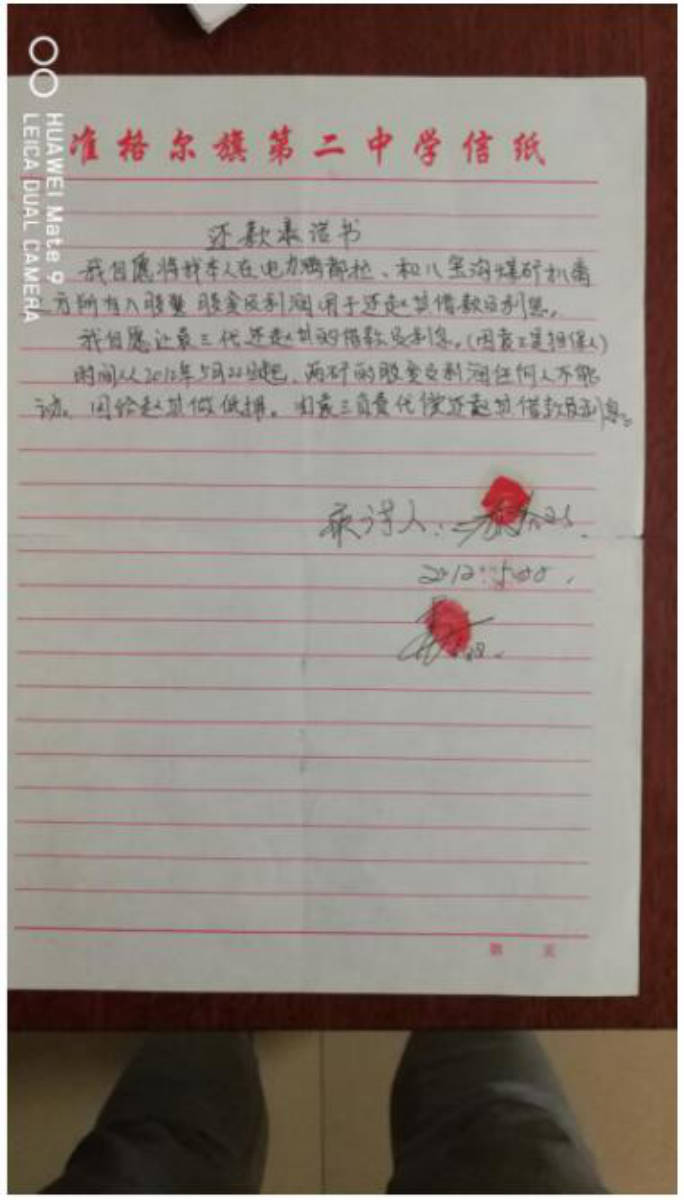 HUAWEI Mate 9
LEICA DUAL CAMERA
准格尔旗第二中学信纸
还款承诺书
我自愿将我本人在电力满都拉、和儿黑沟煤矿机番
方所有入股 股金及利润用于还赵其借款及利息。
我自愿让袁三代还赵其的借款及利息。(因袁三是担保人)
时间从2012年5月22日起、两矿的股金及利润任何人不能
动、因给赵其做低押。由袁三负责代偿还赵其借款及利息。
承诺人:
2012.5.
第 页